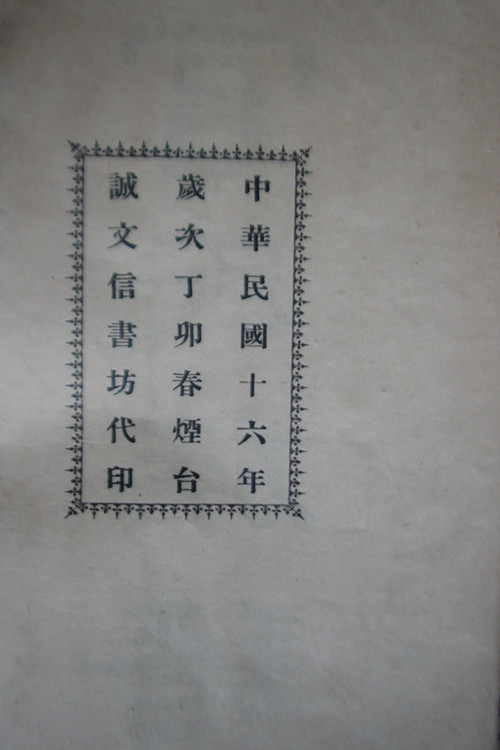 中華民國十六年
歲次丁卯春煙台
誠文信書坊代印